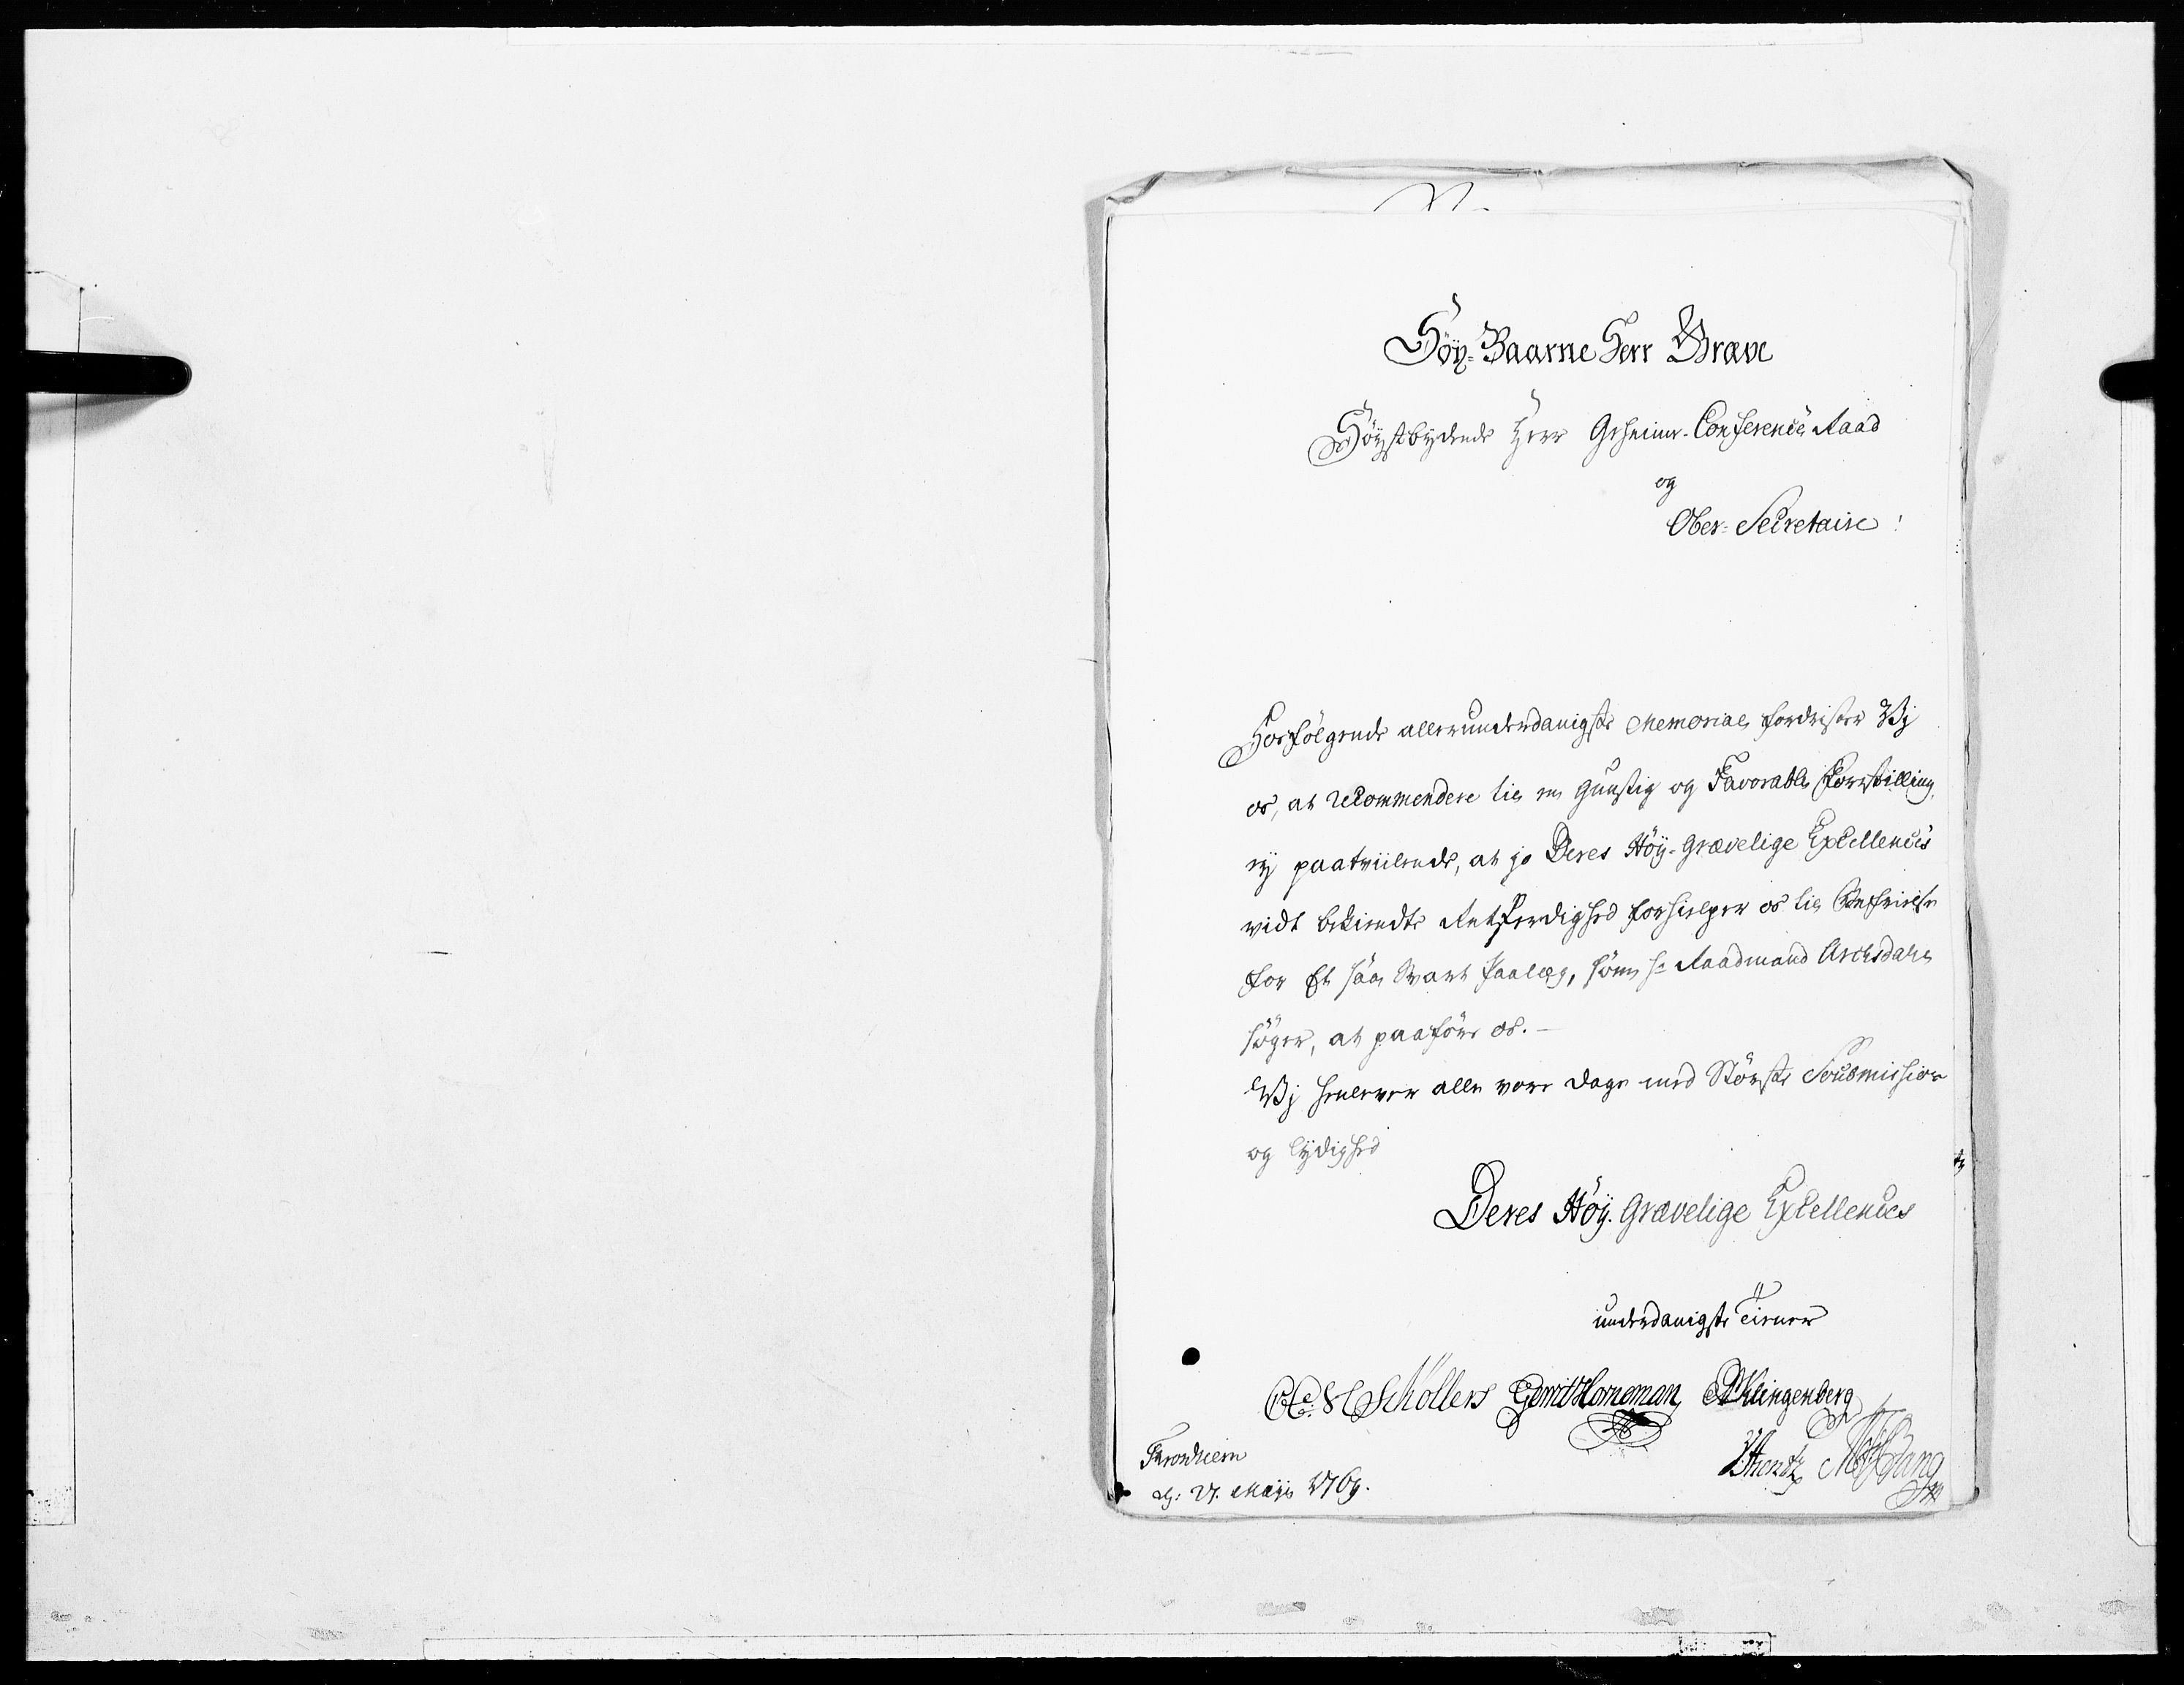 Höy-Baarne Herr Græve
Höystbydende Herr Geheime-Conference Raad
og
Ober-Secretaire!
Hosfölgende allerunderdanigste Memorial fordrister Vj
os, at recommendere til en Gunstig og Favorable Forestilling,
ej paatviilende, at jo Deres Höy-Grævelige Excellence's
vidt bekiendte Retferdighed forhielper os til Befrielse
for Et saa Svart Paalæg, som Hr Raadmand
söger, at paaföre os.-
Vj henlever alle vore dage med Störste Soubmission
og lydighed
Deres Höy-Grævelige Excellences
underdanigste Tienere
Schöllers Gerrit Horneman Klingenberg
Tronhiem
d: 27. Maji 1769. Lyng